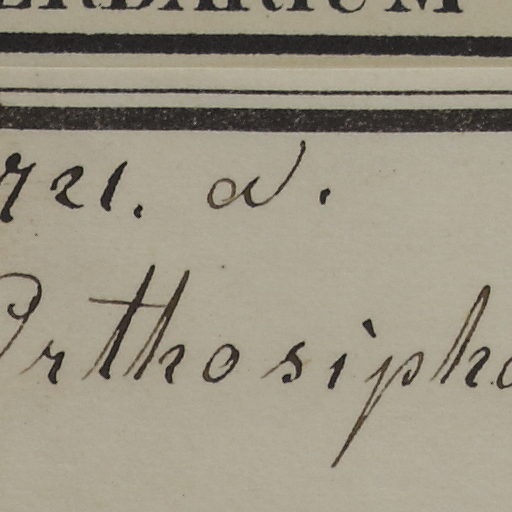 ERBARIUM
721. a.
Orthosipho